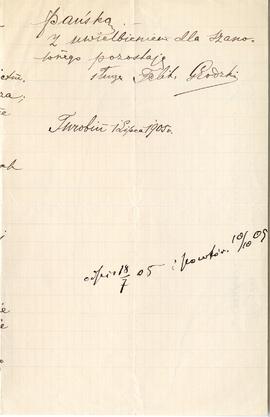 Pańską
z uwielbieniem dla Szano-
wnego pozostaję
sługa Felik. Głodzki
Turobin 1 Lipca 1905 r.
18/7 05 i powtór. 10/10 05